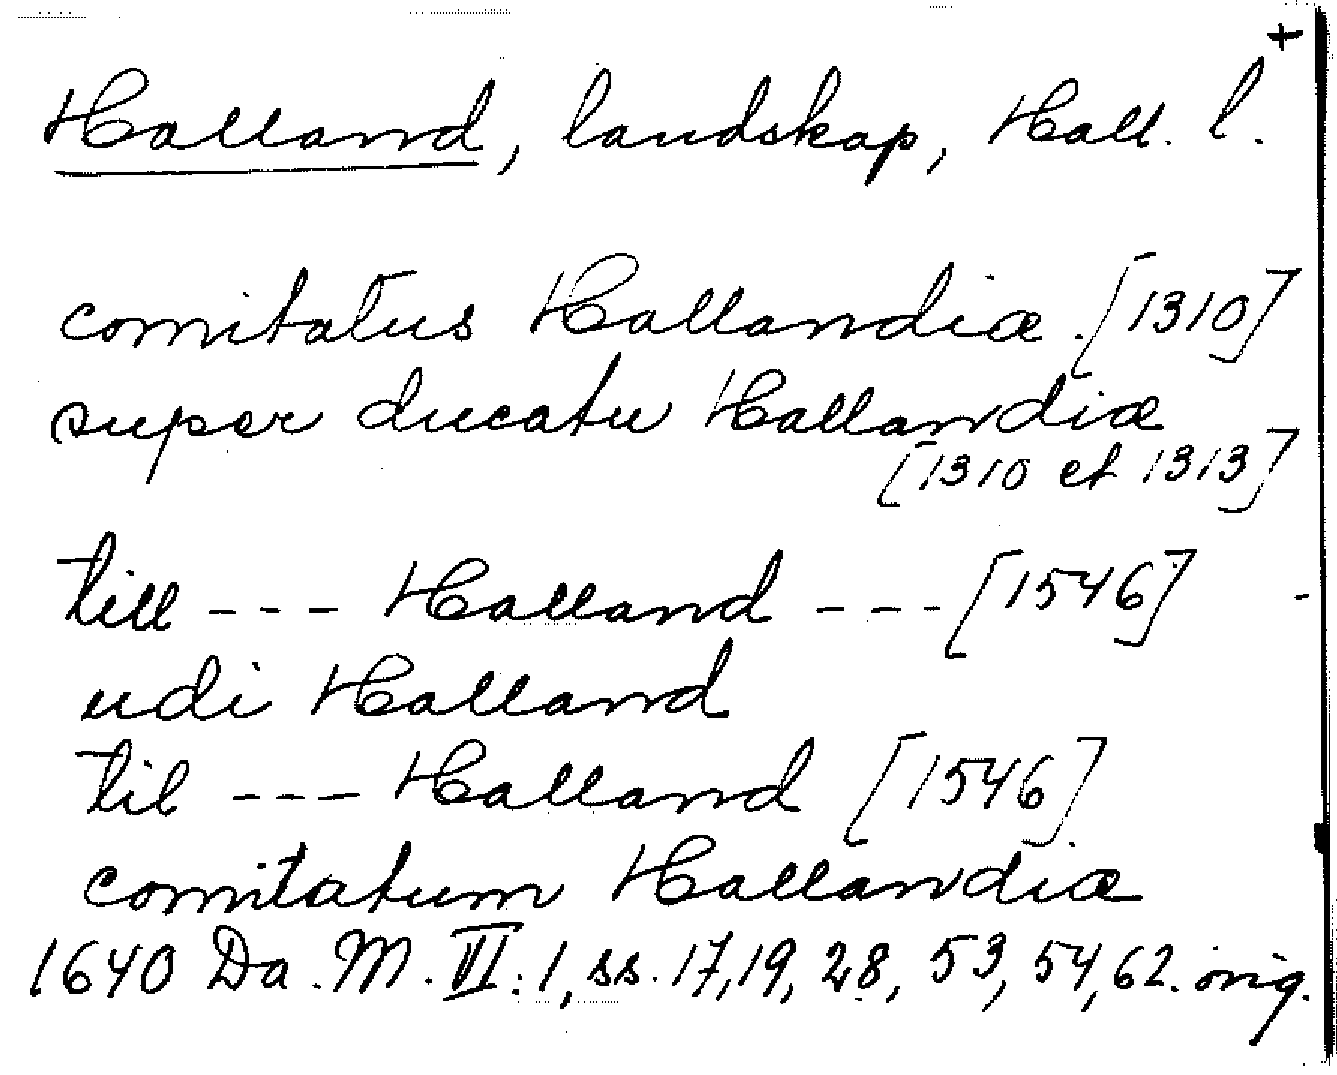 +
Halland, landskap, Hall. l.
comitatus Hallandiæ. [1310]
super ducatu Hallandiæ
[1310 et 1313]
till --- Halland --- [1546] -
udi Halland
til --- Halland [1546]
comitatum Hallandiæ
1640 Da. M. VI:1, ss. 17, 19, 28, 53, 54, 62. orig.